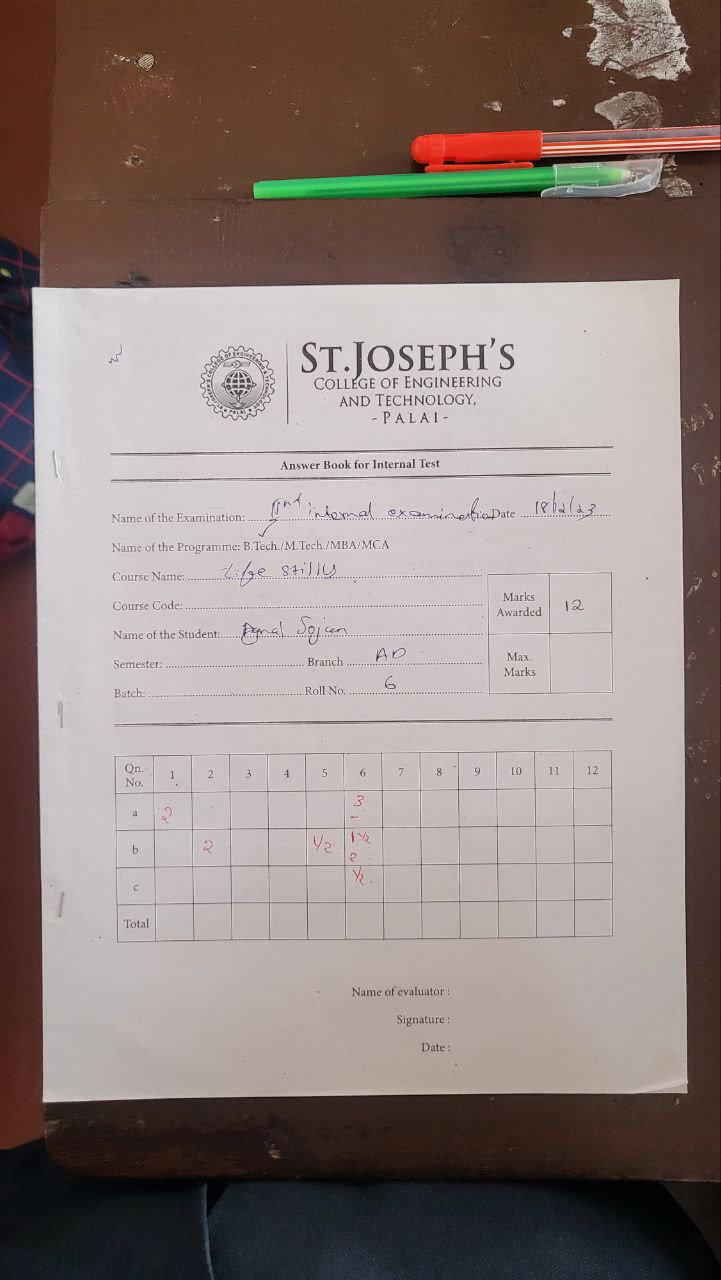 ST.JOSEPH'S
COLLEGE OF ENGINEERING
AND TECHNOLOGY,
- PALAI -
Answer Book for Internal Test
Name of the Examination: IInd internal examination Date 18/12/23
Name of the Programme: B.Tech./M.Tech./MBA/MCA
Course Name: Life skills
Course Code:
Marks Awarded 12
Name of the Student: Sojan
Semester: Branch AD
Max. Marks
Batch: Roll No. 6
Qn. No. 1 2 3 4 5 6 7 8 9 10 11 12
a 2 3 -
b 2 1/2 1 1/2 2
c 1/2
Total
Name of evaluator :
Signature :
Date :